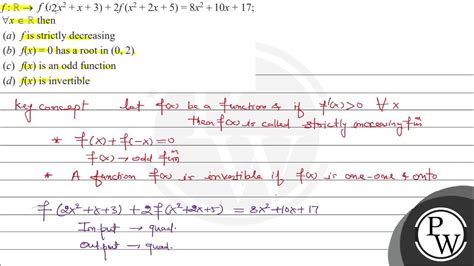 f : R → f (2x² + x + 3) + 2f (x² + 2x + 5) = 8x² + 10x + 17;
∀x ∈ R then
(a) f is strictly decreasing
(b) f(x) = 0 has a root in (0, 2)
(c) f(x) is an odd function
(d) f(x) is invertible
Key concept let f(x) be a function & if f'(x)>0 ∀ x
then f(x) is called strictly increasing fun
* f(x) + f(-x) = 0
f(x) → odd fun
* A function f(x) is invertible if f(x) is one-one & onto
f(2x²+x+3) + 2f(x²+2x+5) = 8x²+10x+17
Input → quad.
Output → quad.
P
W